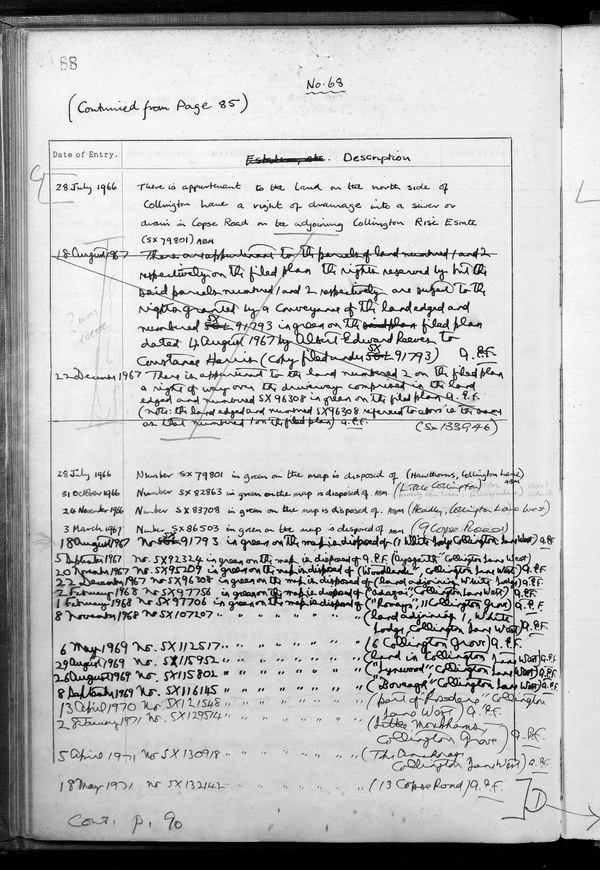 88
No. 68
(Continued from Page 85)
Date of Entry.
Description
28 July 1966 There is appurtenant to the land on the north side of
Collington Lane a right of drainage into a sewer or
drain in Copse Road on the adjoining Collington Rise Estate
(SX 79801) ABM
18 August 1967 There are appurtenant to the parcels of land numbered 1 and 2
respectively on the filed plan the rights reserved by but the
said parcels numbered 1 and 2 respectively are subject to the
rights granted by a Conveyance of the land edged and
numbered SX 91793 in green on the filed plan
dated 4 August 1967 by Albert Edward Reeves to
Constance Harris (copy filed under SX 91793) A.P.F.
22 December 1967 There is appurtenant to the land numbered 2 on the filed plan
a right of way over the driveway comprised in the land
edged and numbered SX96308 in green on the filed plan A.P.F.
(note: the land edged and numbered SX96308 referred to above is the same
as that numbered 1 on the filed plan) A.P.F. (SX 133946)
28 July 1966 Number SX 79801 in green on the map is disposed of (Hawthorns, Collington Lane) ABM
31 October 1966 Number SX 82863 in green on the map is disposed of ABM (Little Collington)
24 November 1966 Number SX 83708 in green on the map is disposed of ABM (Headley, Collington Lane West)
3 March 1967 Number SX 86503 in green on the map is disposed of ABM (9 Copse Road)
18 August 1967 No. SX 91793 in green on the map is disposed of (1 White Lodge Collington Lane West) A.P.F.
5 September 1967 No. SX 92324 in green on the map is disposed of A.P.F. ( Collington Lane West)
20 November 1967 No. SX 95209 in green on the map is disposed of (Woodlands Collington Lane West) A.P.F.
22 December 1967 No SX 96308 in green on the map is disposed of (land adjoining White Lodge) A.P.F.
2 February 1968 No SX 97756 in green on the map is disposed of ( Collington Lane West) A.P.F.
1 February 1968 No SX 97706 in green on the map is disposed of ("Ronays", 11 Collington Grove) A.P.F.
8 November 1968 No SX 107207 " " " " " " (land adjoining 1, White
Lodge, Collington Lane West) A.P.F.
6 May 1969 No. SX 112517 " " " " " " (6 Collington Grove) A.P.F.
29 August 1969 No. SX 115952 " " " " " " (land in Collington Lane West) A.P.F.
26 August 1969 No. SX 115802 " " " " " " ("Lynwood" Collington Lane West) A.P.F.
8 September 1969 No. SX 116145 " " " " " " ( Collington Lane West) A.P.F.
13 April 1970 No. SX 121548 " " " " " " (part of Collington
Lane West) A.P.F.
2 February 1971 No. SX 129514 " " " " " " (Little
Collington Grove) A.P.F.
5 April 1971 No SX 130918 " " " " " " (The Anchorage
Collington Lane West) A.P.F.
18 May 1971 No SX 132142 " " " " " " (13 Copse Road) A.P.F.
Cont. p. 90